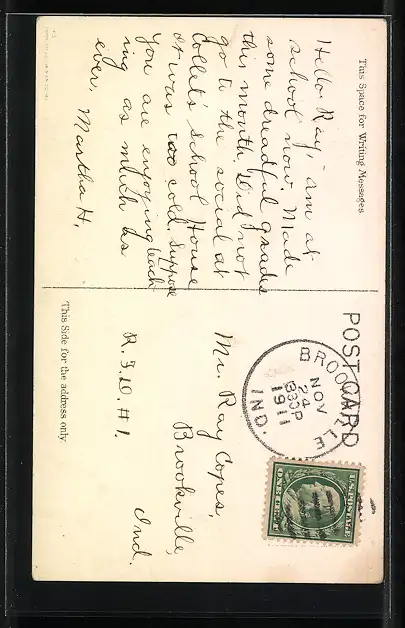 This Space for Writing Messages
Hello Ray, - am at
school now. Made
some dreadful grades
this month. Did not
go to the social at
Collet's School House
It was too cold. Suppose
you are enjoying teach
ing as much as
ever. Martha H.
POST CARD
BROOKVILLE
NOV
24
830P
1911
IND.
U.S. POSTAGE
ONE CENT
Mr. Ray Copes,
Brookville,
Ind.
R.F.D. #1.
This Side for the address only.